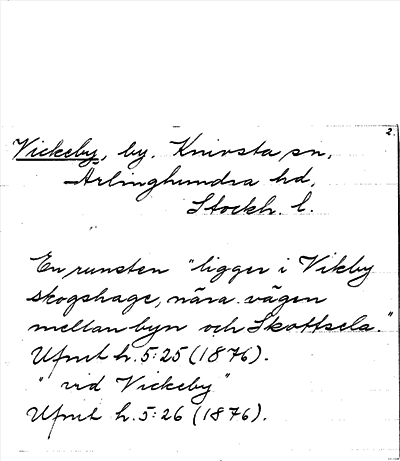 2.
Vickeby, by. Knivsta sn,
Ärlinghundra hd,
Stockh. l.
En runsten "ligger i Vikby
skogshage, nära vägen
mellan byn och Skottsela."
Ufmt h. 5:25 (1876).
"vid Vickeby"
Ufmt h. 5:26 (1876).